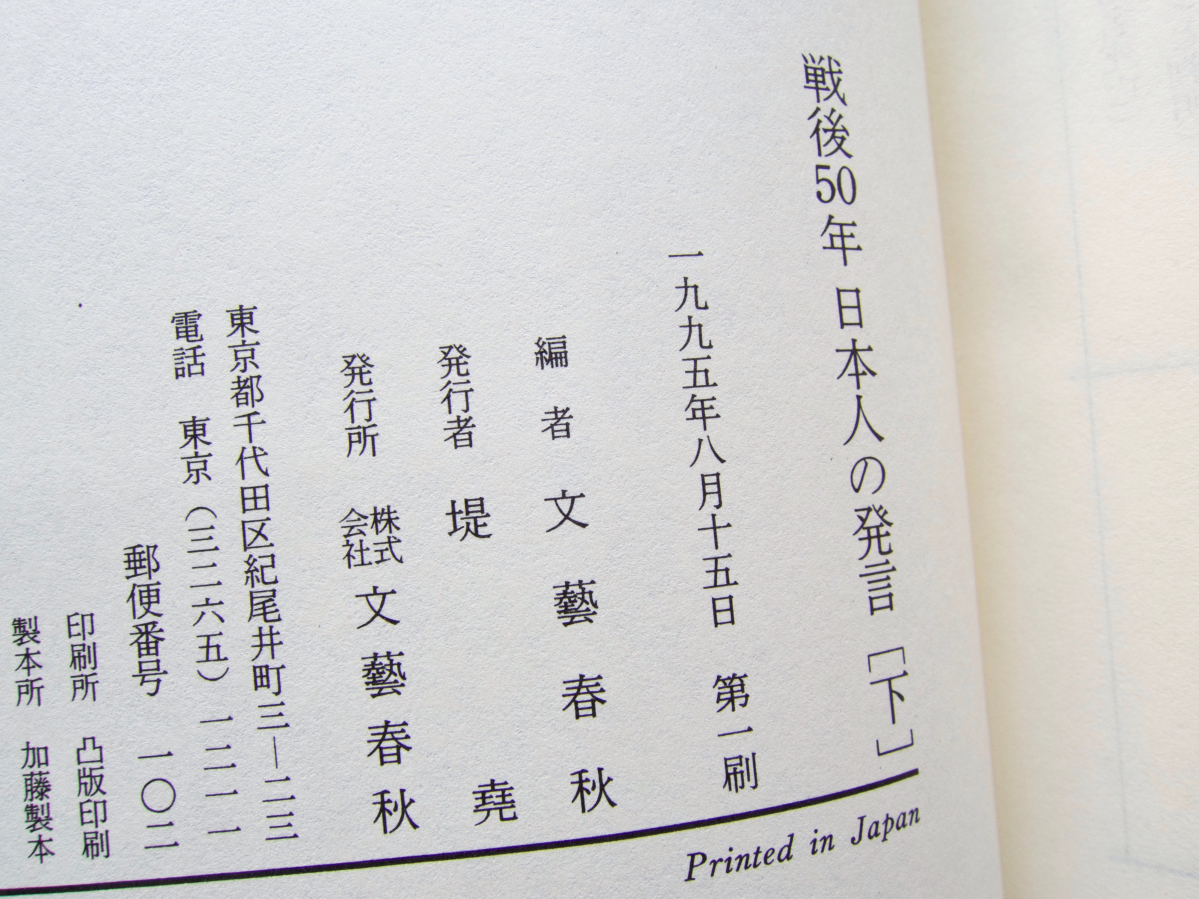 戦後50年 日本人の発言［下］
一九九五年八月十五日 第一刷
編者 文藝春秋
発行者 堤堯
発行所 株式会社 文藝春秋
東京都千代田区紀尾井町三―二三
電話 東京（三二六五）一二一一
郵便番号 一〇二
印刷所 凸版印刷
製本所 加藤製本
Printed in Japan